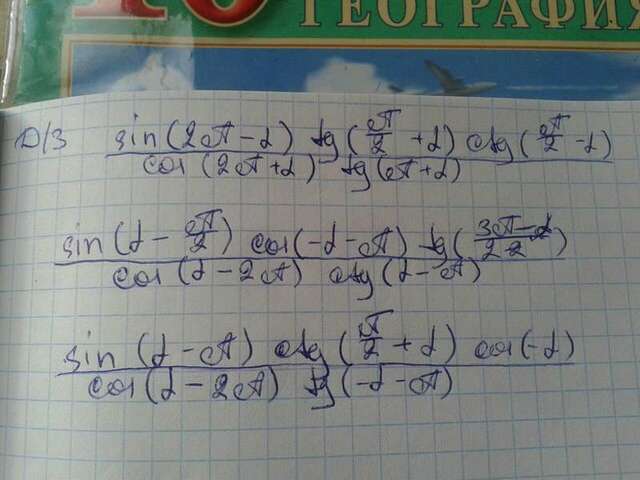 10
ГЕОГРАФИЯ
Д/З sin(2π-α) tg(π/2+α) ctg(π/2-α)
cos(2π+α) tg(π+α)
sin(α-π/2) cos(-α-π) tg(
cos(α-2π) ctg(α-π)
sin(α-π) ctg(π/2+α) cos(-α)
cos(α-2π) tg(-α-π)